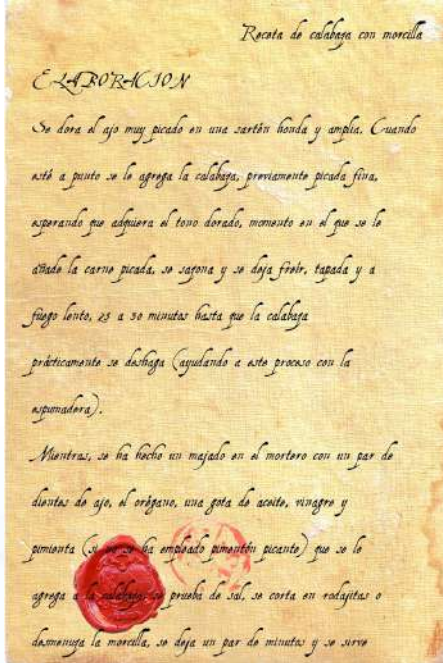 Receta de calabaza con morcilla
ELABORACION
Se dora el ajo muy picado en una sartén honda y amplia. Cuando
esté a punto se le agrega la calabaza, previamente picada fina,
esperando que adquiera el tono dorado, momento en el que se le
añade la carne picada, se sazona y se deja freír, tapada y a
fuego lento, 25 a 30 minutos hasta que la calabaza
prácticamente se deshaga (ayudando a este proceso con la
espumadera).
Mientras, se ha hecho un majado en el mortero con un par de
dientes de ajo, el orégano, una gota de aceite, vinagre y
pimienta (si no se ha empleado pimentón picante) que se le
agrega a la calabaza, se prueba de sal, se corta en rodajitas o
desmenuza la morcilla, se deja un par de minutos y se sirve